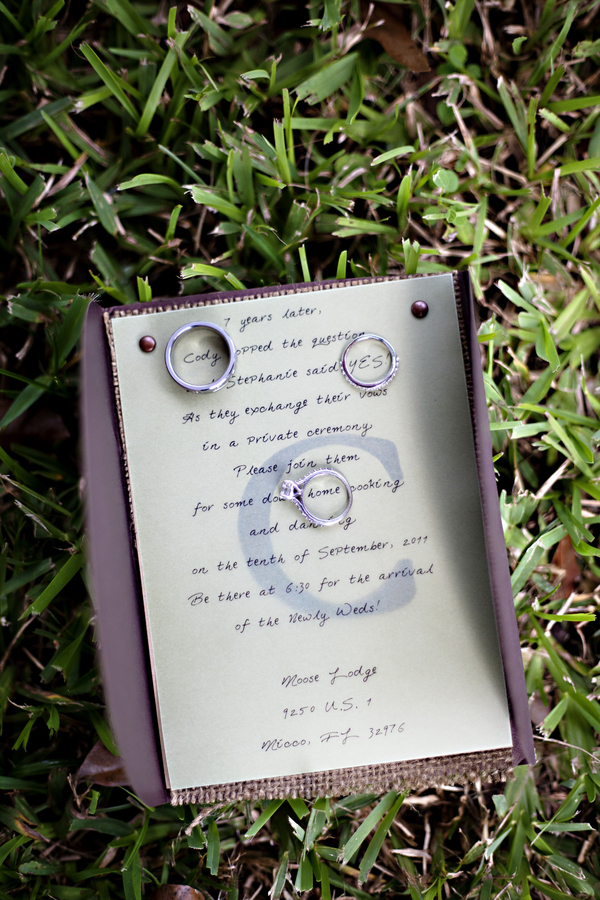 7 years later,
Cody opped the question
Stephanie said "YES"
As they exchange their vows
in a private ceremony
Please join them
for some do home cooking
and dan g
on the tenth of September, 2011
Be there at 6:30 for the arrival
of the Newly Weds!
C
Moose Lodge
9250 U.S. 1
Micco, FL 32976